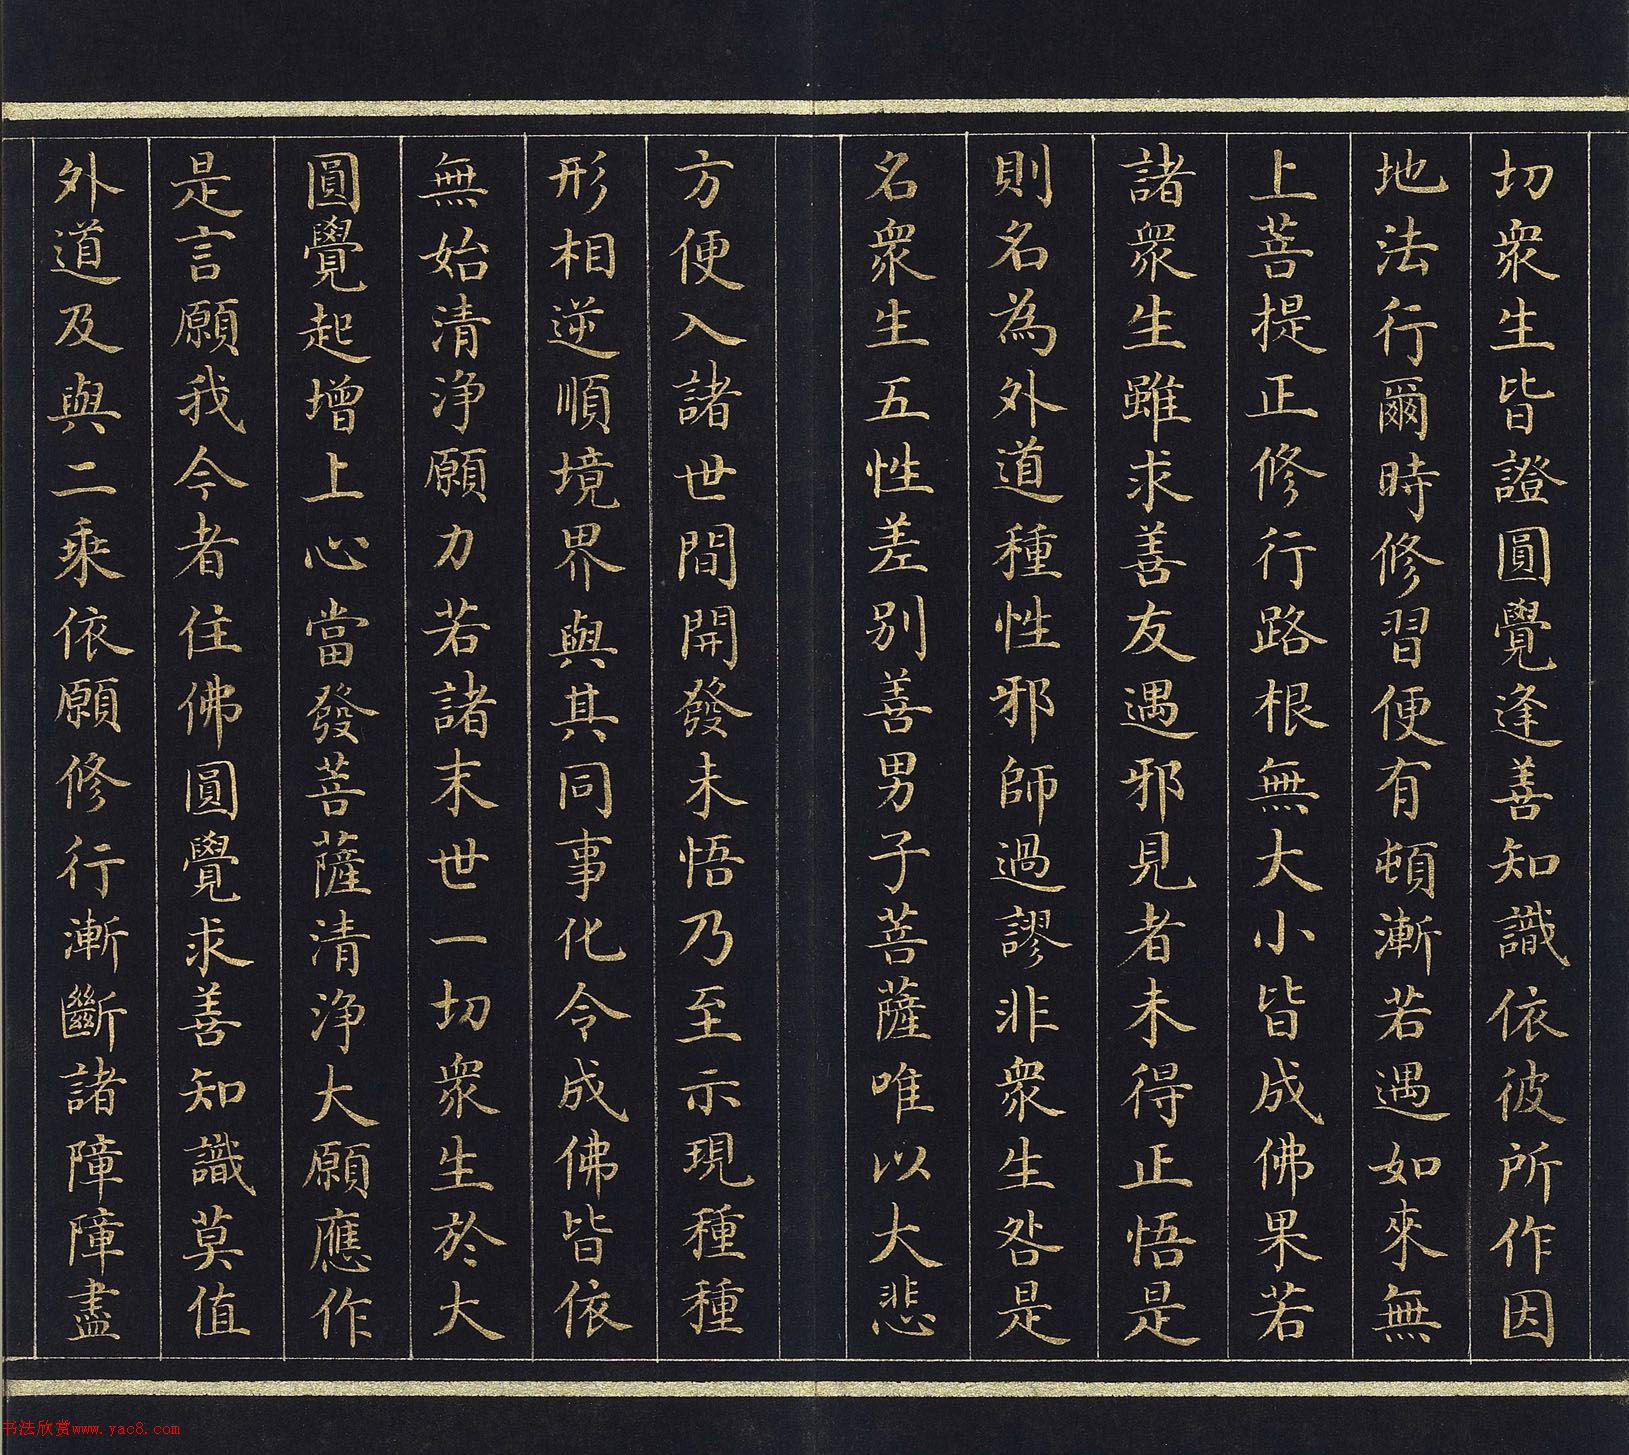 切衆生皆證圓覺逢善知識依彼所作因
地法行爾時修習便有頓漸若遇如來無
上菩提正修行路根無大小皆成佛果若
諸衆生雖求善友遇邪見者未得正悟是
則名為外道種性邪師過謬非衆生咎是
名衆生五性差別善男子菩薩唯以大悲
方便入諸世間開發未悟乃至示現種種
形相逆順境界與其同事化令成佛皆依
無始清淨願力若諸末世一切衆生於大
圓覺起增上心當發菩薩清淨大願應作
是言願我今者住佛圓覺求善知識莫值
外道及與二乘依願修行漸斷諸障障盡
书法欣赏www.yac8.com